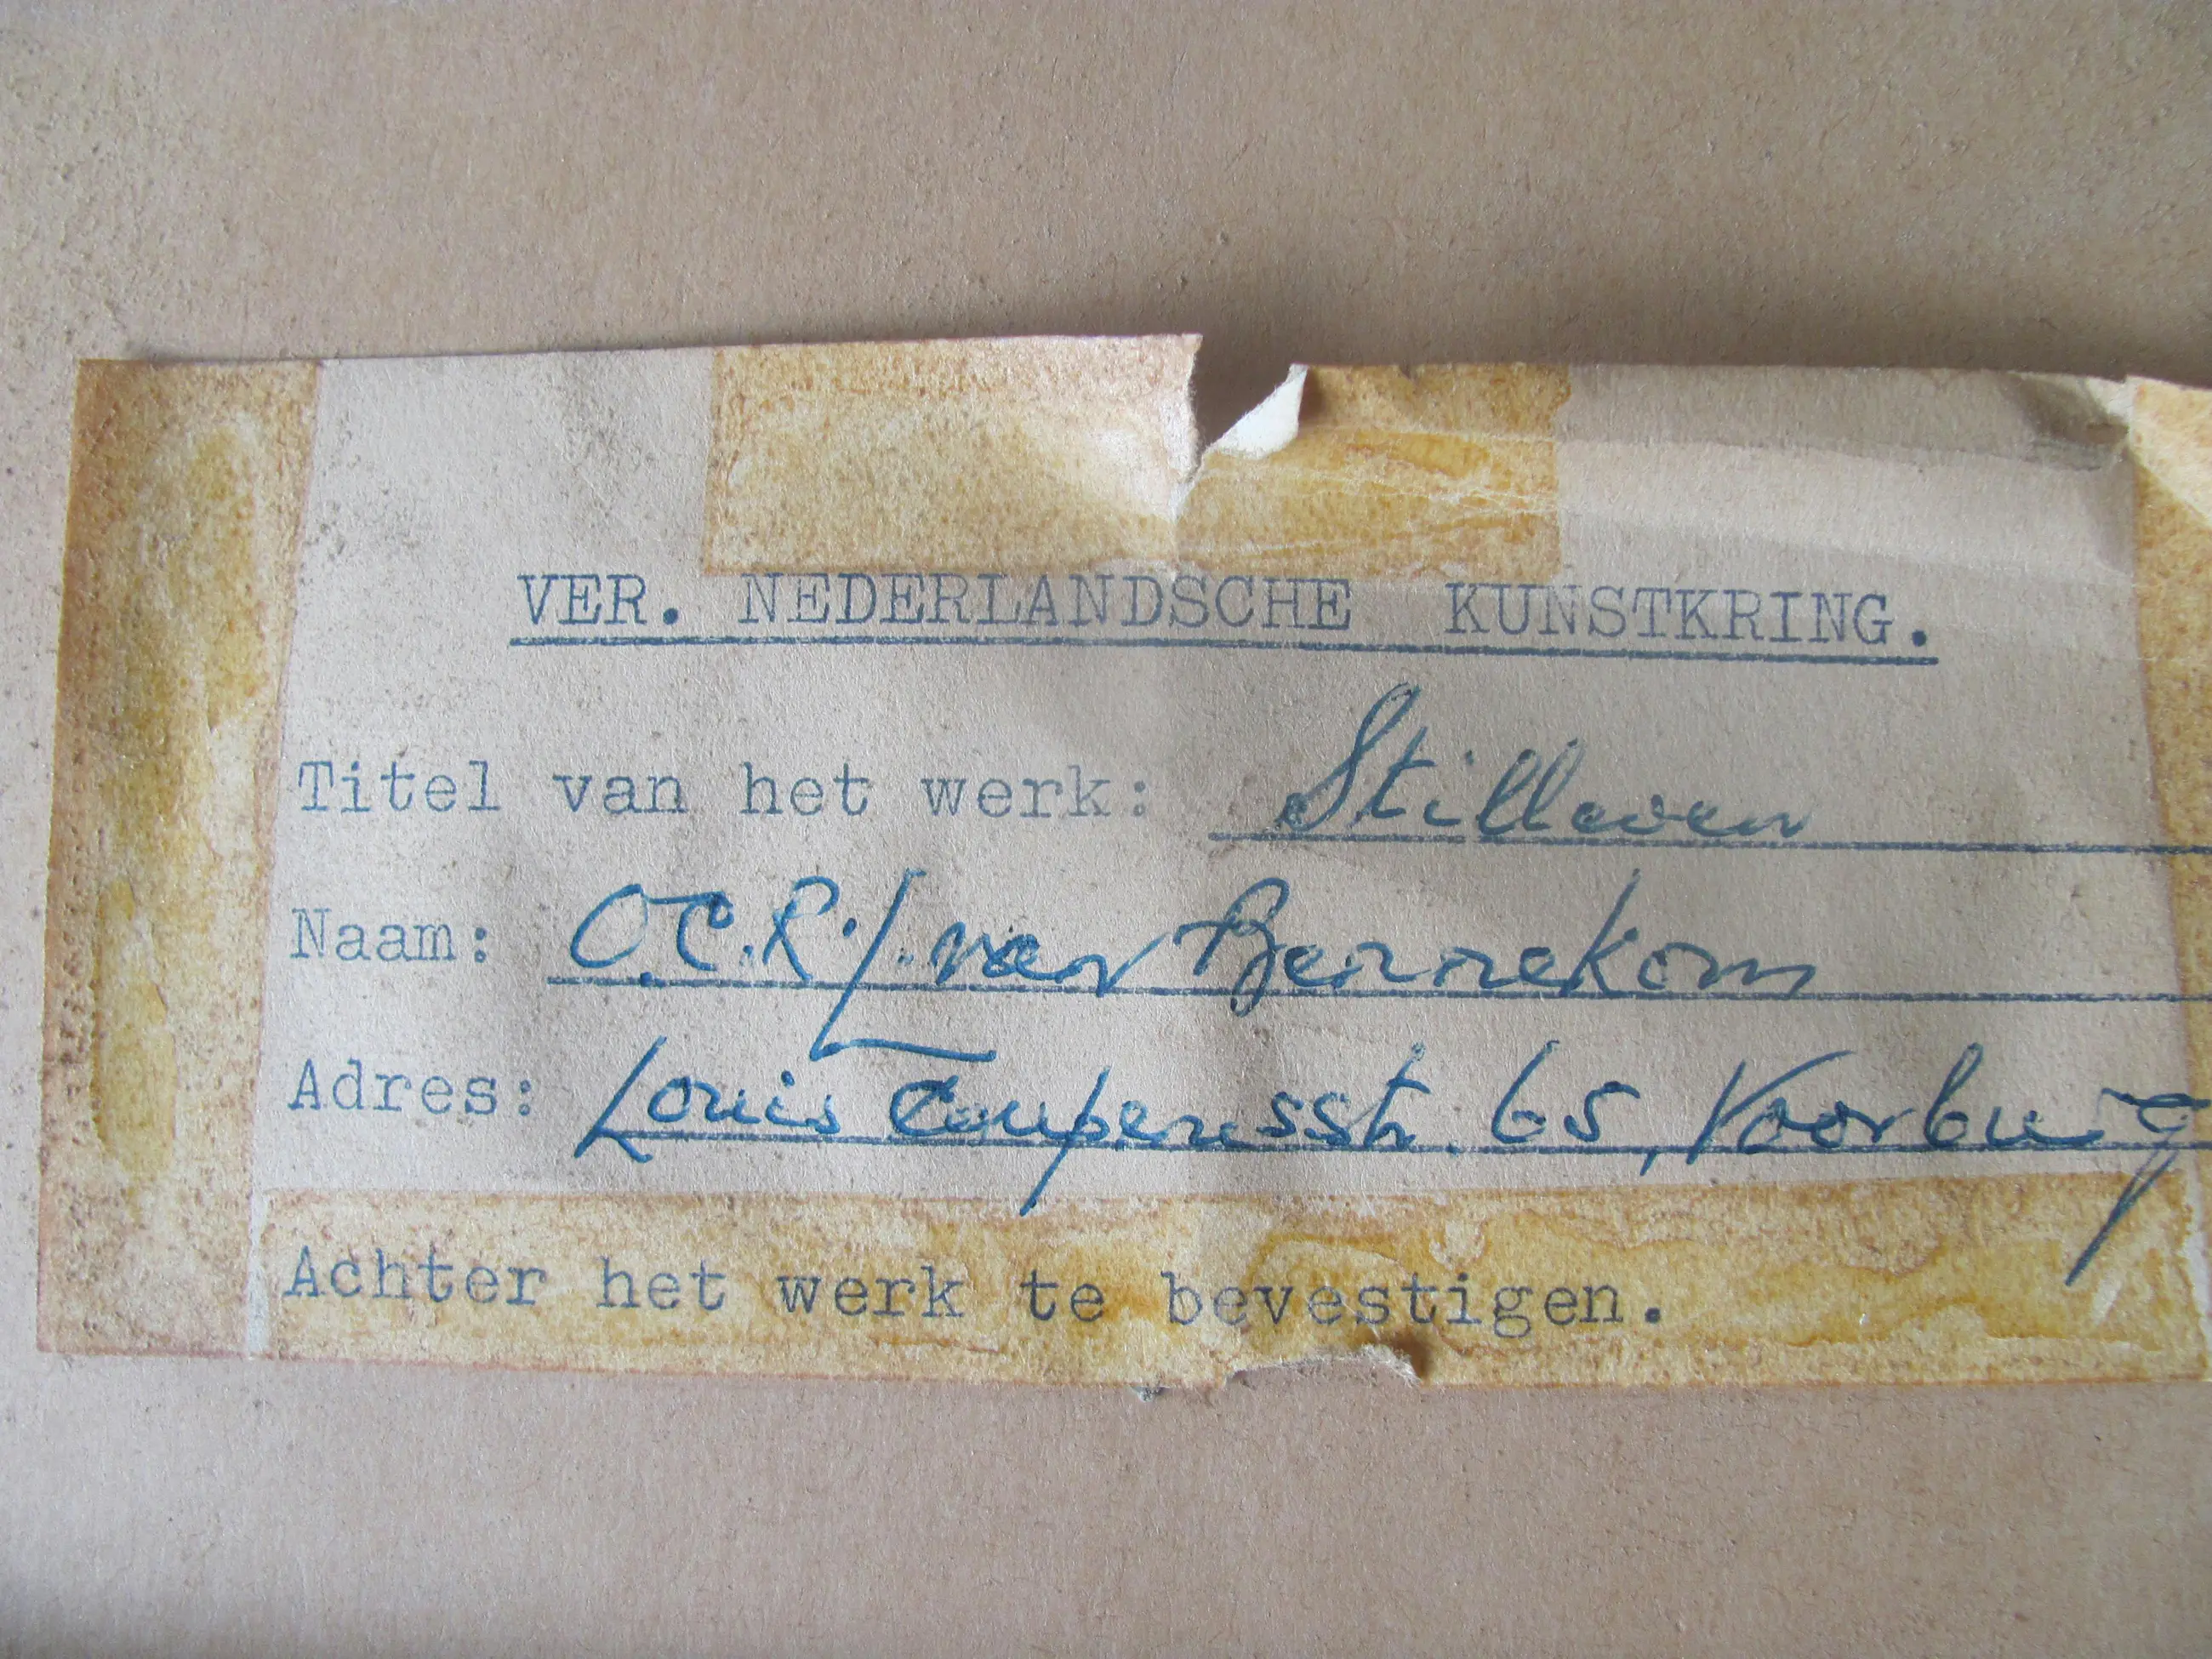 VER. NEDERLANDSCHE KUNSTKRING.
Titel van het werk: Stilleven
Naam: O.C.R.L. van Bennekom
Adres: Louis Couperusstr. 65, Voorburg
Achter het werk te bevestigen.